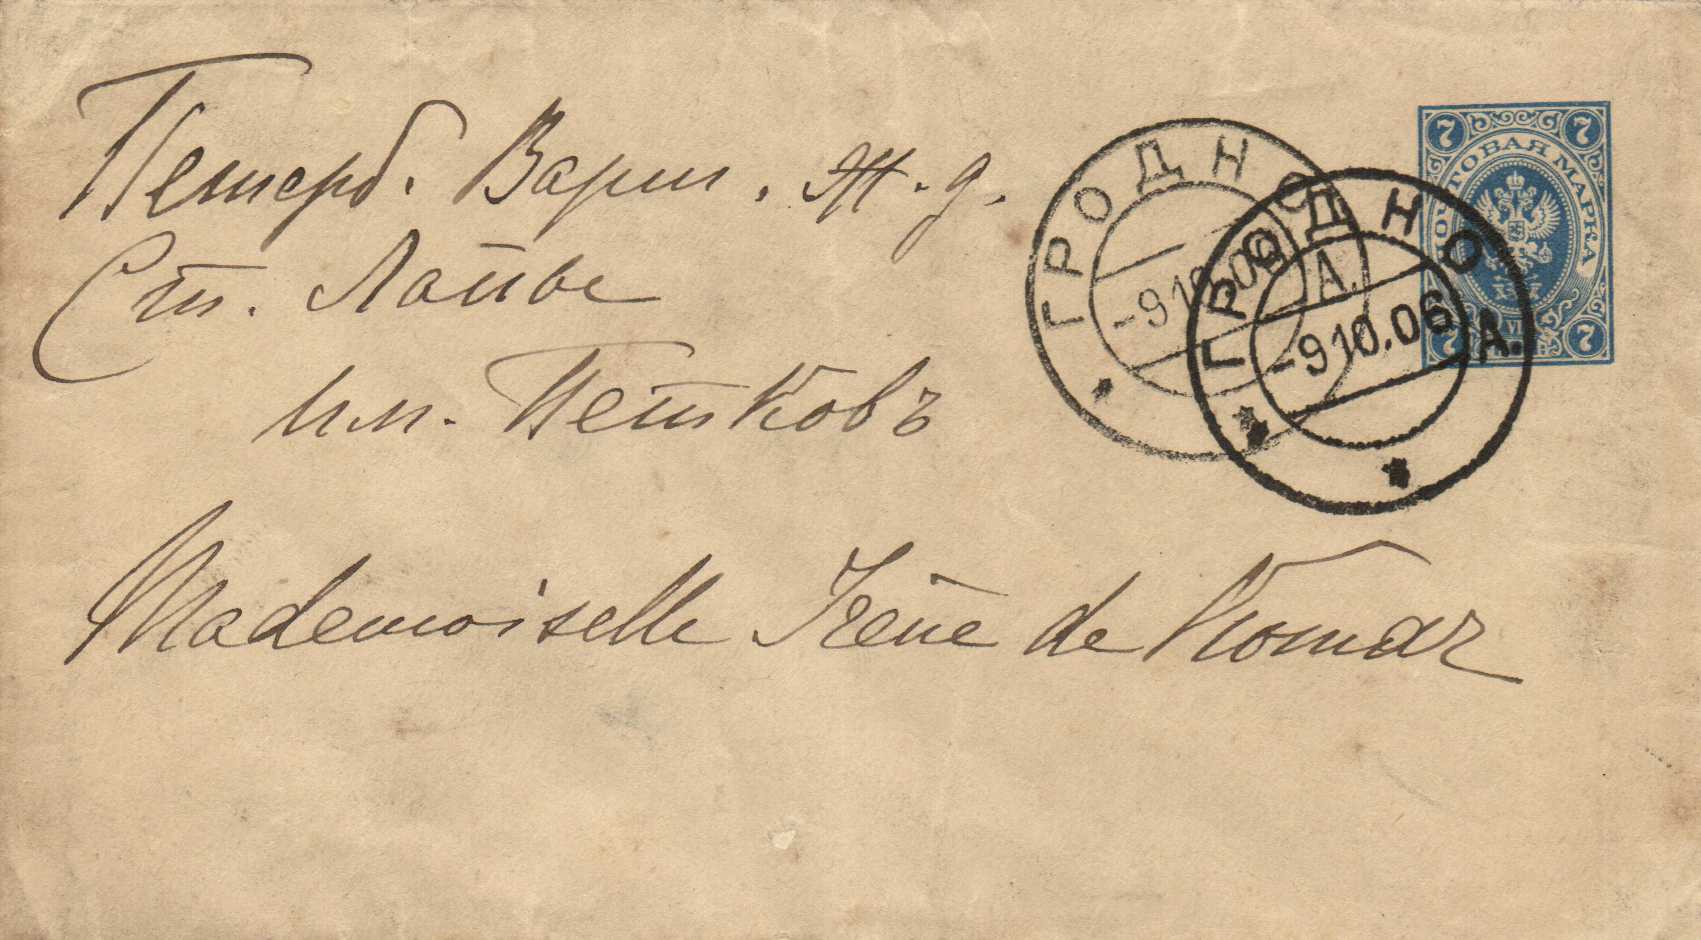 Петерб. Варш. Ж. д.
Ст. Лапы
им. Петковъ
Mademoiselle Irène de Komar
ГРОДНО
-9 10.06
А.
ГРОДНО
-9 10.06
А.
7 7
ПОЧТОВАЯ МАРКА
7 7